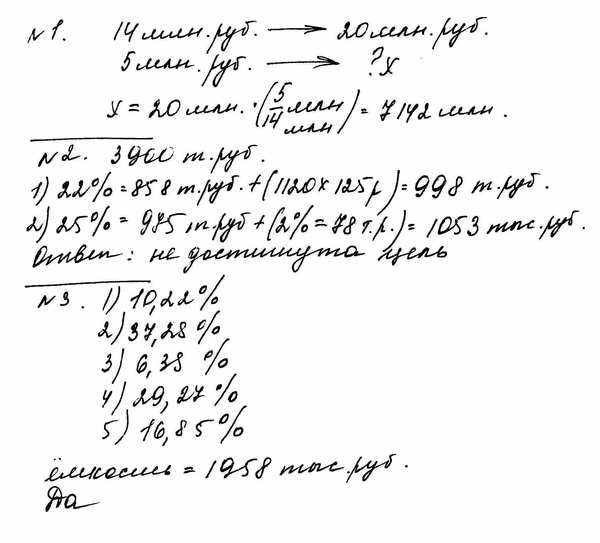 №1. 14 млн. руб. → 20 млн. руб.
5 млн. руб. → ? х
х = 20 млн. · (5 млн / 14 млн) = 7142 млн.
№2. 3900 т. руб.
1) 22% = 858 т. руб. + (1120 х 125 р) = 998 т. руб.
2) 25% = 975 т. руб + (2% = 78 т. р.) = 1053 тыс. руб.
Ответ: не достигнута цель
№3. 1) 10,22%
2) 37,28%
3) 6,38 %
4) 29,27%
5) 16,85%
ёмкость = 1958 тыс. руб.
Да